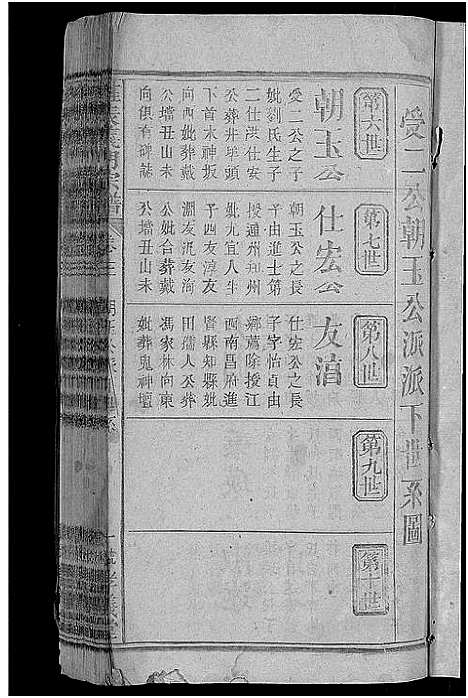 受二公朝玉公派派下世系圖
第六世
朝玉公
受二公之子
妣劉氏生子
二仕洪仕安
公葬井埠頭
下首水神坂
向西妣葬戴
公壋丑山未
向俱有碑誌
第七世
仕宏公
朝玉公之長
子由進士第
授通州和州
妣九宜人生
子四友淳友
淵友泥友渝
公妣台葬戴
公壋丑山未
第八世
友湻
仕宏公之長
子字怡貞由
鄉薦除授江
西南昌府進
賢縣知縣妣
田孺人公葬
馮家林向東
妣葬鬼神壇
第九世
第十世